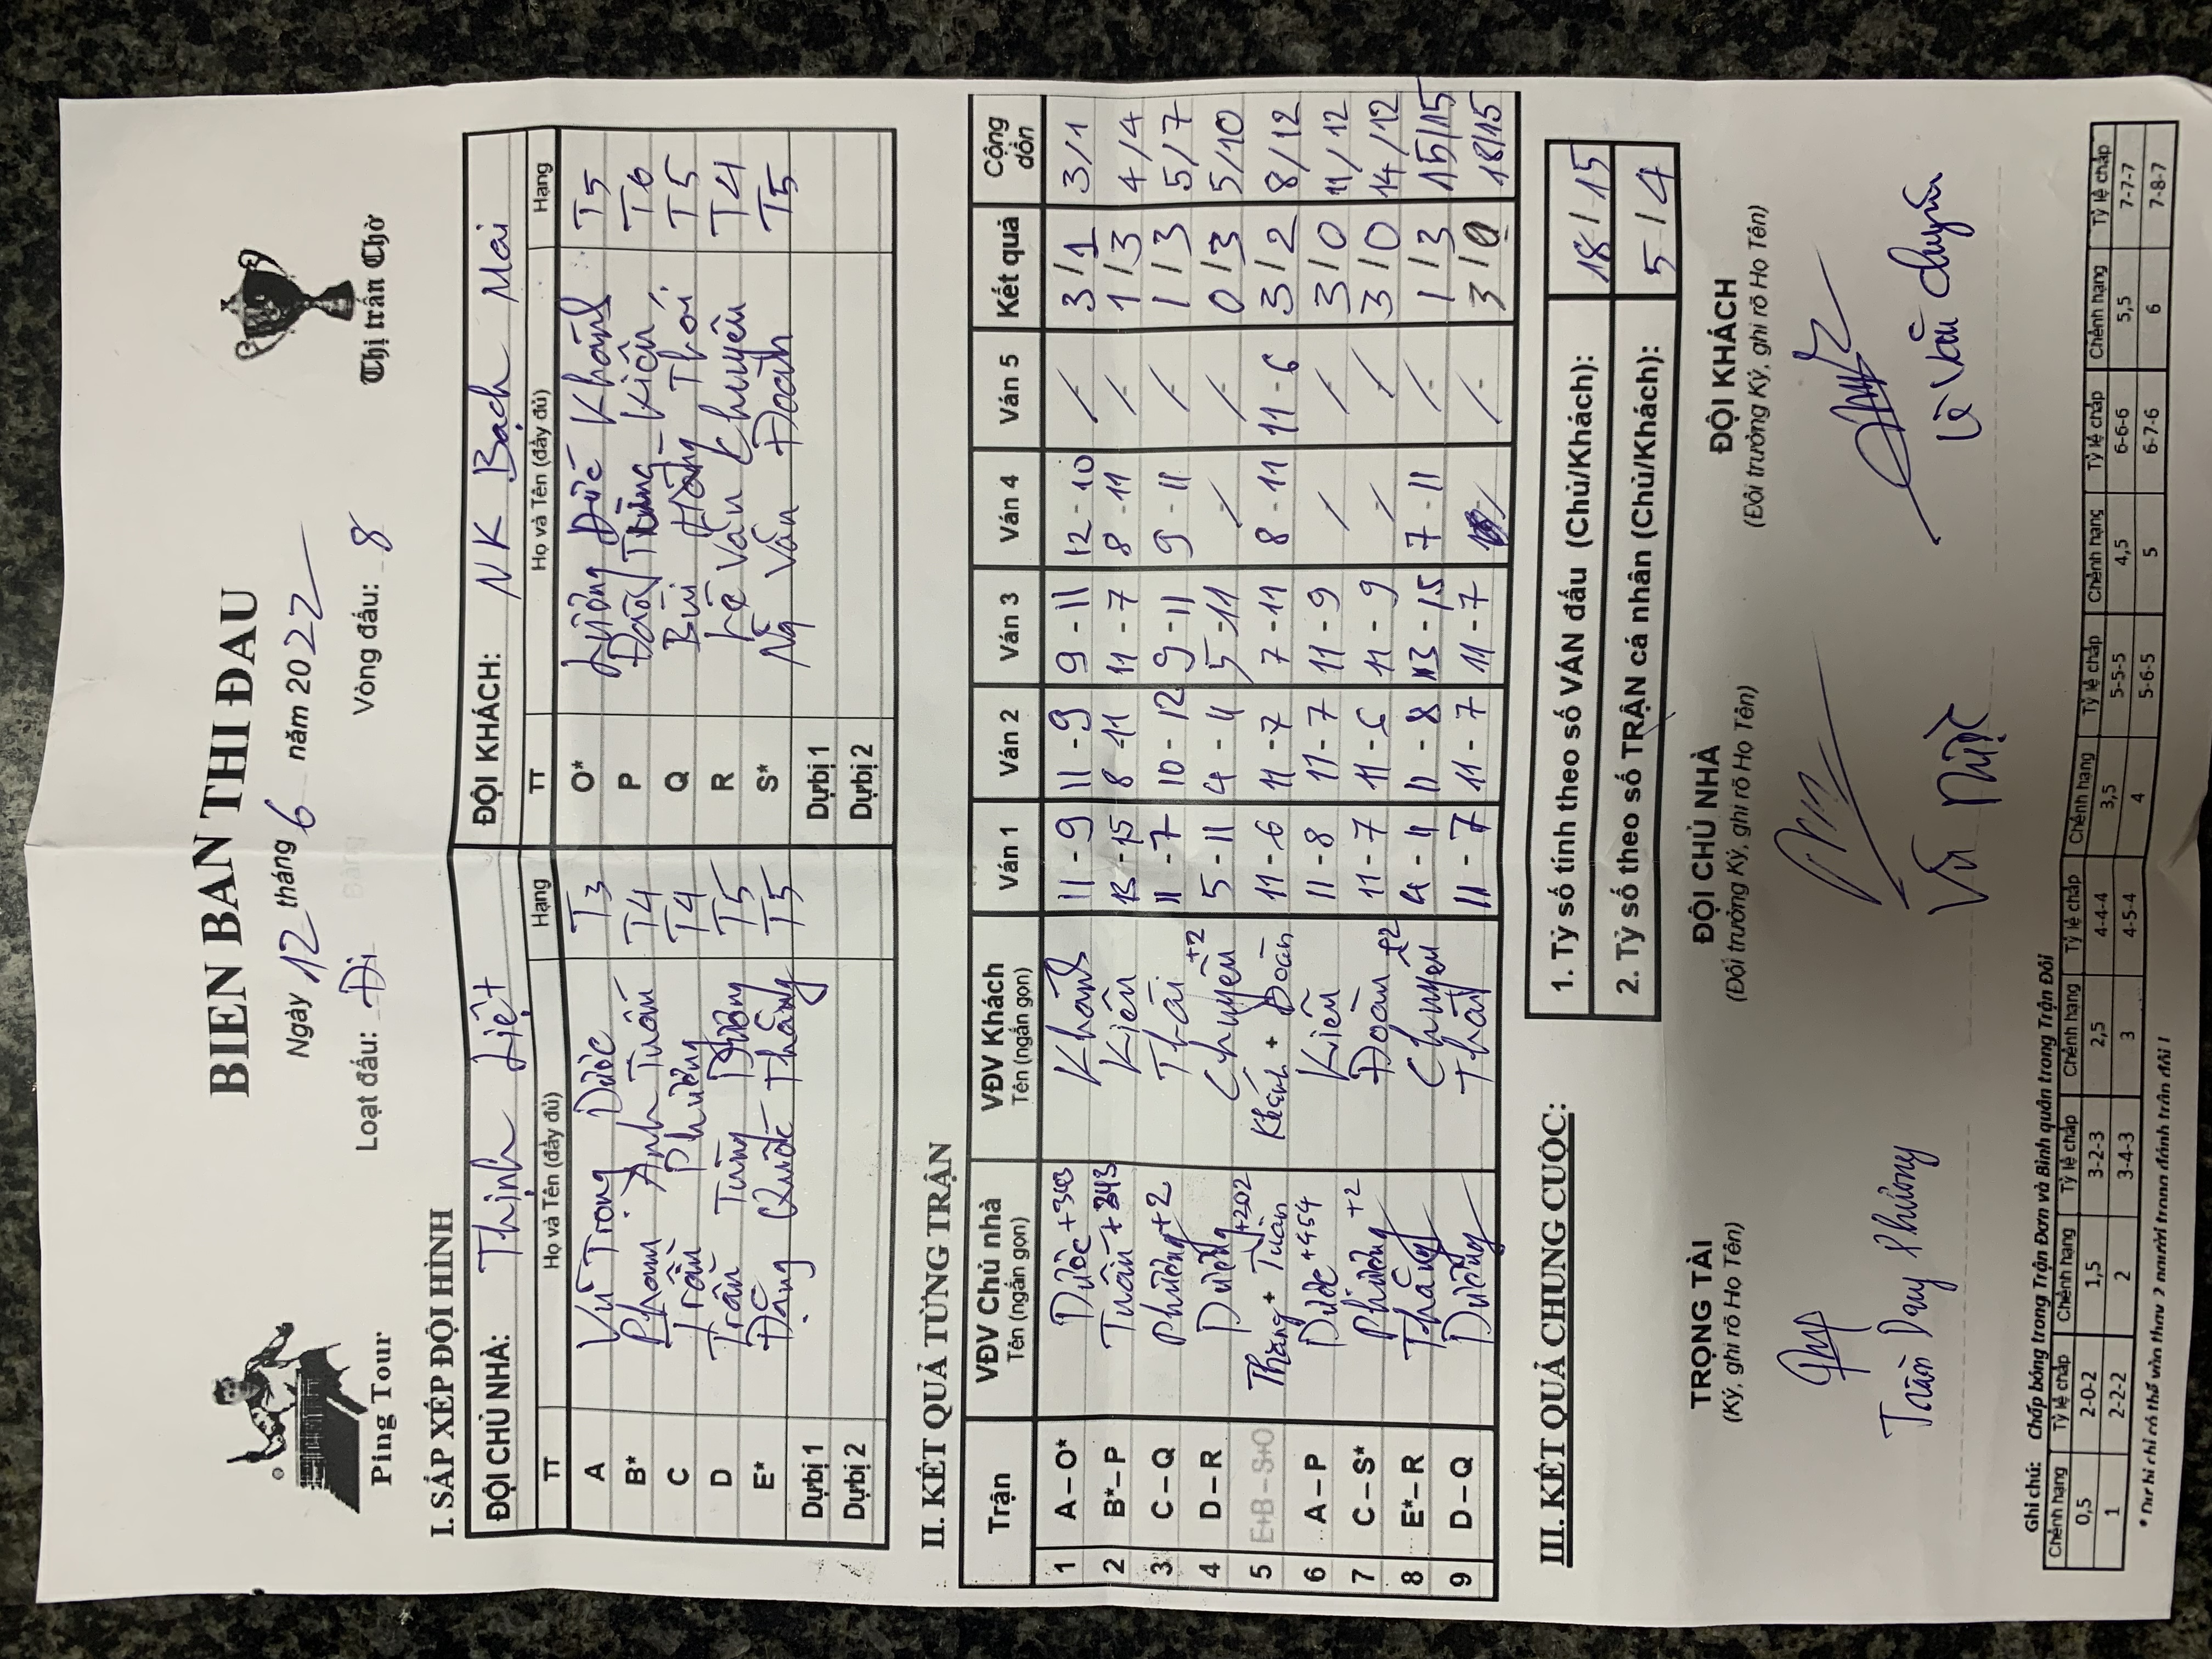 BIEN BAN THI ĐAU
Ngày 12 tháng 6 năm 2022
Ping Tour
Loạt đấu: Đi Bảng Vòng đấu: 8
Thị trấn Chờ
I. SẮP XẾP ĐỘI HÌNH
ĐỘI CHỦ NHÀ: Thịnh Liệt ĐỘI KHÁCH: NK Bạch Mai
TT Họ và Tên (đầy đủ) Hạng TT Họ và Tên (đầy đủ) Hạng
A Vũ Trọng Được T3 O* Lương Đức Khánh T5
B* Phạm Anh Tuấn T4 P Đào Trung Kiên T6
C Trần Phương T4 Q Bùi Thái T5
D Trần Tùng Dương T5 R Lê Văn Chuyên T4
E* Đặng Quốc Thắng T5 S* Ng Văn Đoàn T5
Dự bị 1 Dự bị 1
Dự bị 2 Dự bị 2
II. KẾT QUẢ TỪNG TRẬN
Trận VĐV Chủ nhà VĐV Khách Ván 1 Ván 2 Ván 3 Ván 4 Ván 5 Kết quả Cộng dồn
Tên (ngắn gọn) Tên (ngắn gọn)
1 A – O* Được +343 Khánh 11 - 9 11 - 9 9 - 11 12 - 10 / 3/1 3/1
2 B* – P Tuấn +343 Kiên 13 - 15 8 - 11 11 - 7 8 - 11 / 1/3 4/4
3 C – Q Phương +2 Thái 11 - 7 10 - 12 9 - 11 9 - 11 / 1/3 5/7
4 D – R Dương Chuyên +2 5 - 11 4 - 11 5 - 11 / / 0/3 5/10
5 E+B – S+O Thắng + Tuấn +202 Khánh + Đoàn 11 - 6 11 - 7 7 - 11 8 - 11 11 - 6 3/2 8/12
6 A – P Được +454 Kiên 11 - 8 11 - 7 11 - 9 / / 3/0 11/12
7 C – S* Phương +2 Đoàn 11 - 7 11 - 6 11 - 9 / / 3/0 14/12
8 E* – R Thắng Chuyên +2 9 - 11 11 - 8 13 - 15 7 - 11 / 1/3 15/15
9 D – Q Dương Thái 11 - 7 11 - 7 11 - 7 / / 3/0 18/15
III. KẾT QUẢ CHUNG CUỘC:
1. Tỷ số tính theo số VÁN đấu (Chủ/Khách): 18/15
2. Tỷ số theo số TRẬN cá nhân (Chủ/Khách): 5/4
TRỌNG TÀI ĐỘI CHỦ NHÀ ĐỘI KHÁCH
(Ký, ghi rõ Họ Tên) (Đội trưởng Ký, ghi rõ Họ Tên) (Đội trưởng Ký, ghi rõ Họ Tên)
Trần Duy Phương Lê Văn Chuyên
Ghi chú: Chấp bóng trong Trận Đơn và Bình quân trong Trận Đôi
Chênh hạng Tỷ lệ chấp Chênh hạng Tỷ lệ chấp Chênh hạng Tỷ lệ chấp Chênh hạng Tỷ lệ chấp Chênh hạng Tỷ lệ chấp Chênh hạng Tỷ lệ chấp Chênh hạng Tỷ lệ chấp
0,5 2-0-2 1,5 3-2-3 2,5 4-4-4 3,5 5-5-5 4,5 6-6-6 5,5 7-7-7
1 2-2-2 2 3-4-3 3 4-5-4 4 5-6-5 5 6-7-6 6 7-8-7
* Dự bị chỉ có thể vào thay 2 người trong đánh trận đôi !